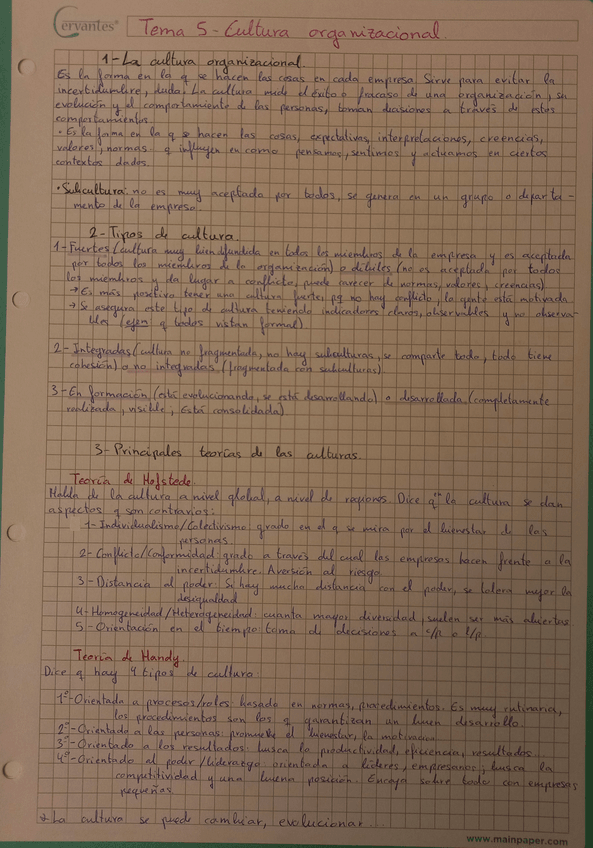 Cervantes
Tema 5 - Cultura organizacional
1 - La cultura organizacional.
Es la forma en la q se hacen las cosas en cada empresa. Sirve para evitar la
incertidumbre, duda. La cultura mide el éxito o fracaso de una organización, su
evolución y el comportamiento de las personas, toman decisiones a través de estos
comportamientos.
· Es la forma en la q se hacen las cosas, expectativas, interpretaciones, creencias,
valores, normas q influyen en como pensamos, sentimos y actuamos en ciertos
contextos dados.
· Subcultura: no es muy aceptada por todos, se genera en un grupo o departa-
mento de la empresa.
2 - Tipos de cultura.
1 - Fuertes (cultura muy bien difundida en todos los miembros de la empresa y es aceptada
por todos los miembros de la organización) o débiles (no es aceptada por todos
los miembros y da lugar a conflicto, puede carecer de normas, valores, creencias)
→ Es más positivo tener una cultura fuerte, pq no hay conflicto, la gente está motivada
→ Se asegura este tipo de cultura teniendo indicadores claros, observables y no observa-
bles (ejem q todos vistan formal)
2 - Integradas (cultura no fragmentada, no hay subculturas, se comparte todo, todo tiene
cohesión) o no integradas (fragmentada con subculturas)
3 - En formación (está evolucionando, se está desarrollando) o desarrollada (completamente
realizada, visible, Está consolidada)
3 - Principales teorías de las culturas.
Teoría de Hofstede.
Habla de la cultura a nivel global, a nivel de regiones. Dice q en la cultura se dan
aspectos q son contrarios:
1 - Individualismo/Colectivismo: grado en el q se mira por el bienestar de las
personas.
2 - Conflicto/Conformidad: grado a través del cual las empresas hacen frente a la
incertidumbre. Aversión al riesgo
3 - Distancia al poder: Si hay mucha distancia con el poder, se tolera mejor la
desigualdad
4 - Homogeneidad/Heterogeneidad: cuanta mayor diversidad, suelen ser más abiertas
5 - Orientación en el tiempo: toma de decisiones a c/p o l/p.
Teoría de Handy.
Dice q hay 4 tipos de cultura:
1º - Orientada a procesos/roles: basado en normas, procedimientos. Es muy rutinaria,
los procedimientos son los q garantizan un buen desarrollo.
2º - Orientado a las personas: promueve el bienestar, la motivación.
3º - Orientado a los resultados: busca la productividad, eficiencia, resultados...
4º - Orientado al poder/liderazgo: orientada a líderes, empresarios; busca la
competitividad y una buena posición. Encaja sobre todo con empresas
pequeñas.
* La cultura se puede cambiar, evolucionar...
www.mainpaper.com